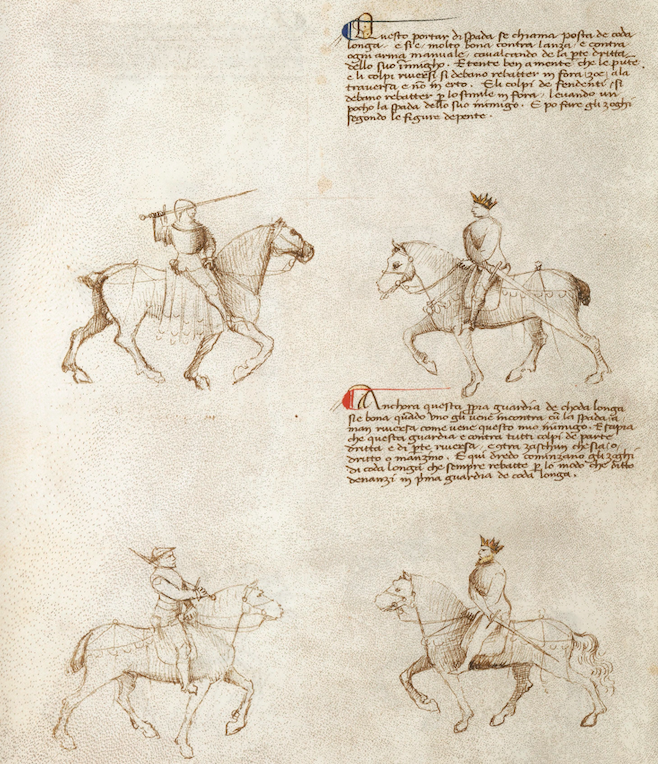 Questo portar di spada se chiama posta de coda
longa e si e molto bona contra lanza e contra
ogni arma manuale, cavalcando de la pte dritta
dello suo inimigho. E tente ben a mente che le pute
e li colpi riversi si debano rebatter in fora zoe, a la
traversa e non in erto. E li colpi de fendenti, si
debano rebatter p lo simile in fora, levando un
pocho la spada dello suo inimigo. E po fare gli zoghi
segondo le figure depente.
Anchora questa ppia guardia de choda longa
si e bona quado uno gli vene incontra cu la spada a
man riversa come vene questo mio inimigo. E sapia
che questa guardia e contra tutti colpi de parte
dritta e di pte riversa, e contra zaschun che sia o,
dritto o manzino. E qui dredo cominzano gli zoghi
di coda longa che sempre rebatte p lo modo che ditto
denanzi in pma guardia de coda longa.